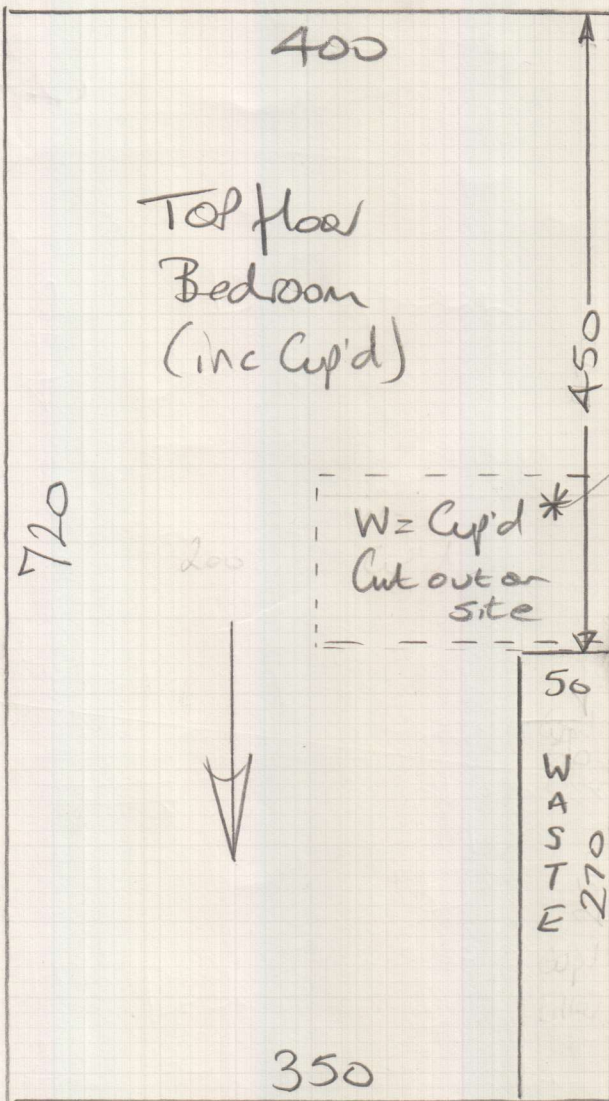 400
Top floor
Bedroom
(inc Cup'd)
450
720
W = Cup'd *
Cut out on
site
200
50
WASTE
270
350